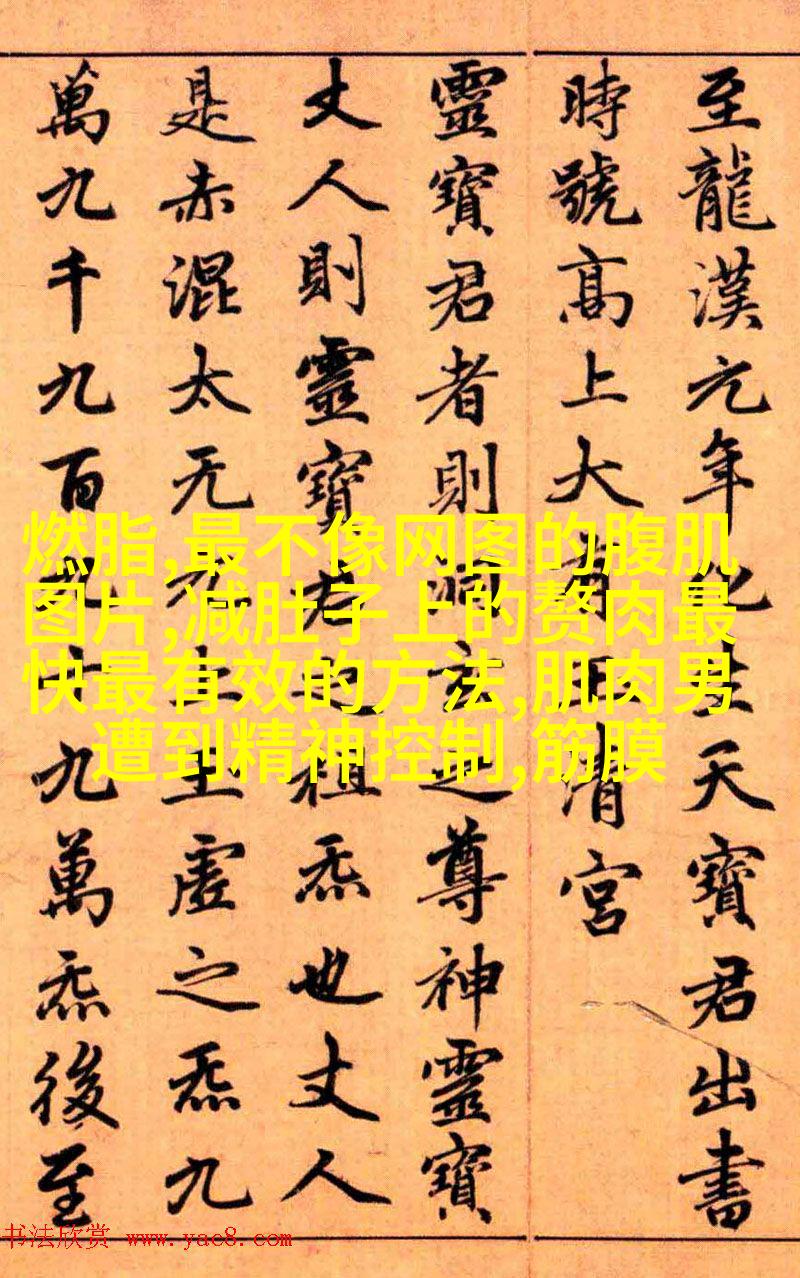 至龍漢元年化生天寶君出書
時號高上大有玉清宮
靈寶君者則洞玄之尊神靈寶
丈人則靈寶君之祖炁也丈人
是赤混太无元上玉虛之炁九
萬九千九百九十九萬炁後至
燃脂,最不像网图的腹肌
图片,减肚子上的赘肉最
快最有效的方法,肌肉男
遭到精神控制,筋膜
书法欣赏 www.yac8.com